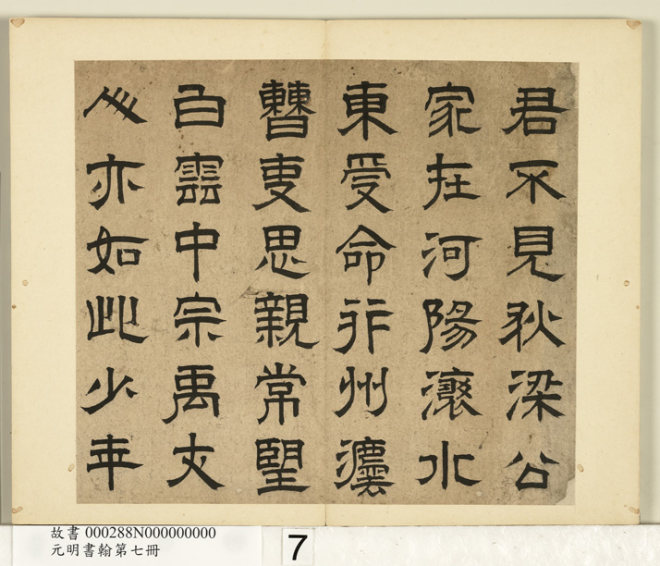 君不見狄梁公
家在河陽水
東受命并州灋
曹吏思親常望
白雲中宗禹文
心亦如此少年
故書 000288N000000000
元明書翰第七冊
7